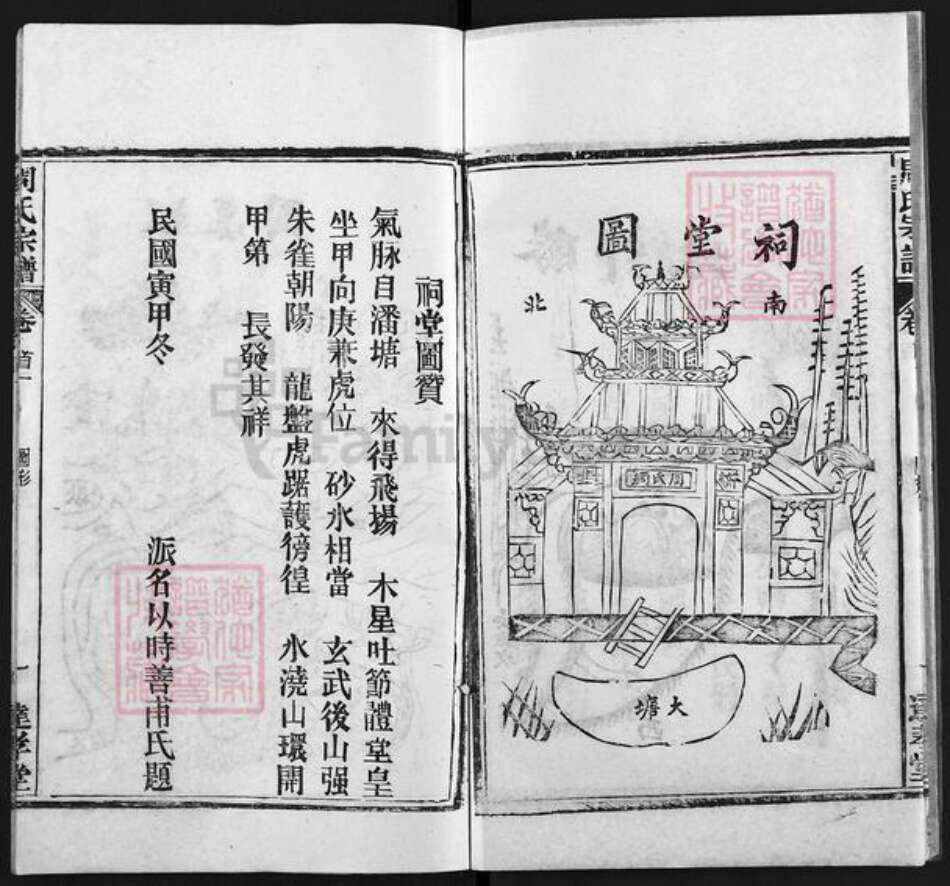 祠堂圖
南
北
周氏祠
大塘
周氏宗譜
卷首
圖形
祠堂圖贊
氣脉自潘塘 來得飛揚 木星吐節體堂皇
坐甲向庚兼虎位 砂水相當 玄武後山强
朱雀朝陽 龍盤虎踞護徬徨 水澆山環開
甲第 長發其祥
民國寅甲冬 派名以時善甫氏題
周氏宗譜
卷首
圖形
一
達孝堂